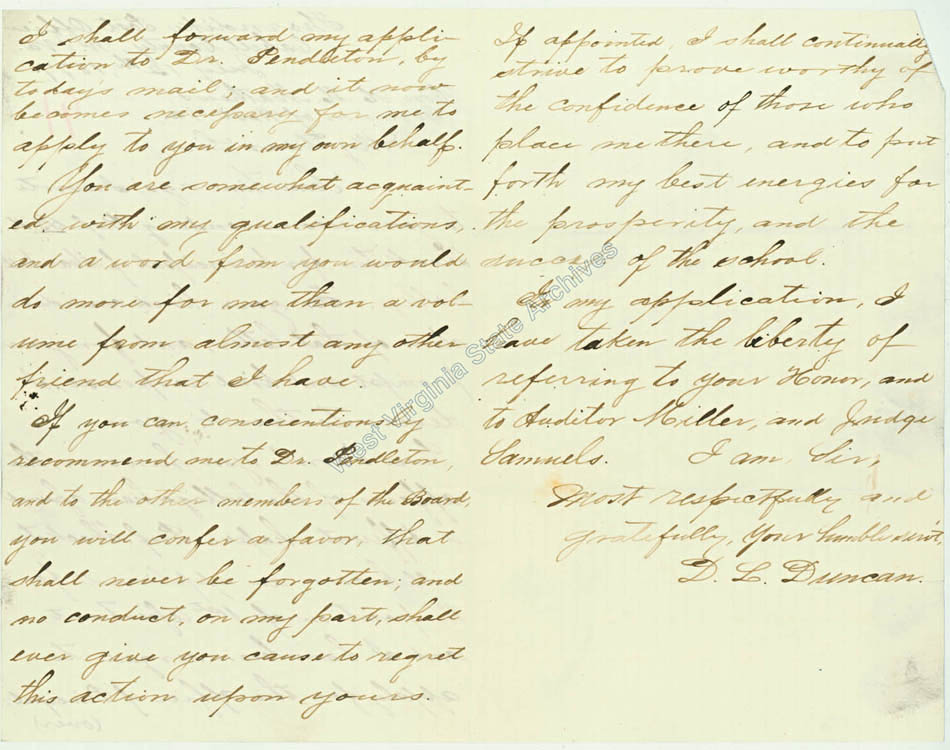 I shall forward my appli-
cation to Dr. Pendleton, by
today's mail; and it now
becomes necessary for me to
apply to you in my own behalf.
You are somewhat acquaint-
ed with my qualifications,
and a word from you would
do more for me than a vol-
ume from almost any other
friend that I have.
If you can conscientiously
recommend me to Dr. Pendleton,
and to the other members of the Board,
you will confer a favor, that
shall never be forgotten; and
no conduct, on my part, shall
ever give you cause to regret
this action upon yours.
If appointed, I shall continually
strive to prove worthy of
the confidence of those who
place me there, and to put
forth my best energies for
the prosperity, and the
success of the school.
In my application, I
have taken the liberty of
referring to your Honor, and
to Auditor Miller, and Judge
Samuels. I am Sir,
Most respectfully and
gratefully, Your humble serv't,
D. L. Duncan.
West Virginia State Archives